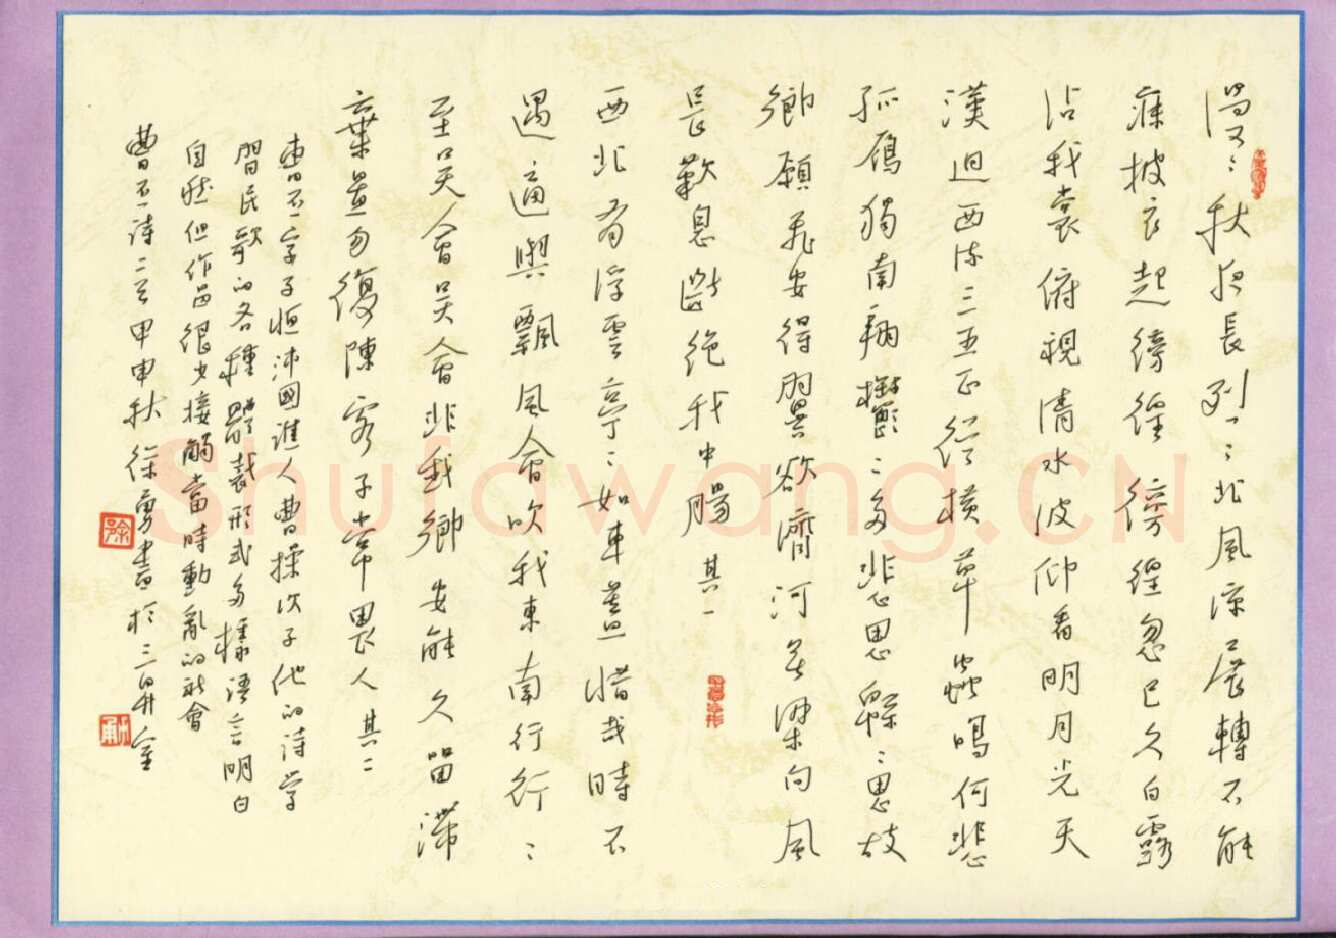 漫〻秋夜長列〻北風涼展轉不能
寐披衣起徬徨徬徨忽已久白露
沾我裳俯視清水波仰看明月光天
漢迴西流三五正縱橫草蟲鳴何悲
孤雁獨南翔鬱〻多悲思緜〻思故
鄉願飛安得翼欲濟河無梁向風
長歎息斷絕我中腸 其一
西北有浮雲亭〻如車蓋惜哉時不
遇適與飄風會吹我東南行行〻
至吳會吳會非我鄉安能久留滯
棄置勿復陳客子常畏人 其二
曹丕字子恒沛國譙人曹操次子他的詩學
習民歌的各種體裁形式多樣語言明白
自然但作品很少接觸當時動亂的社會
曹丕詩二首甲申秋徐勇書於三
Shufawang.CN